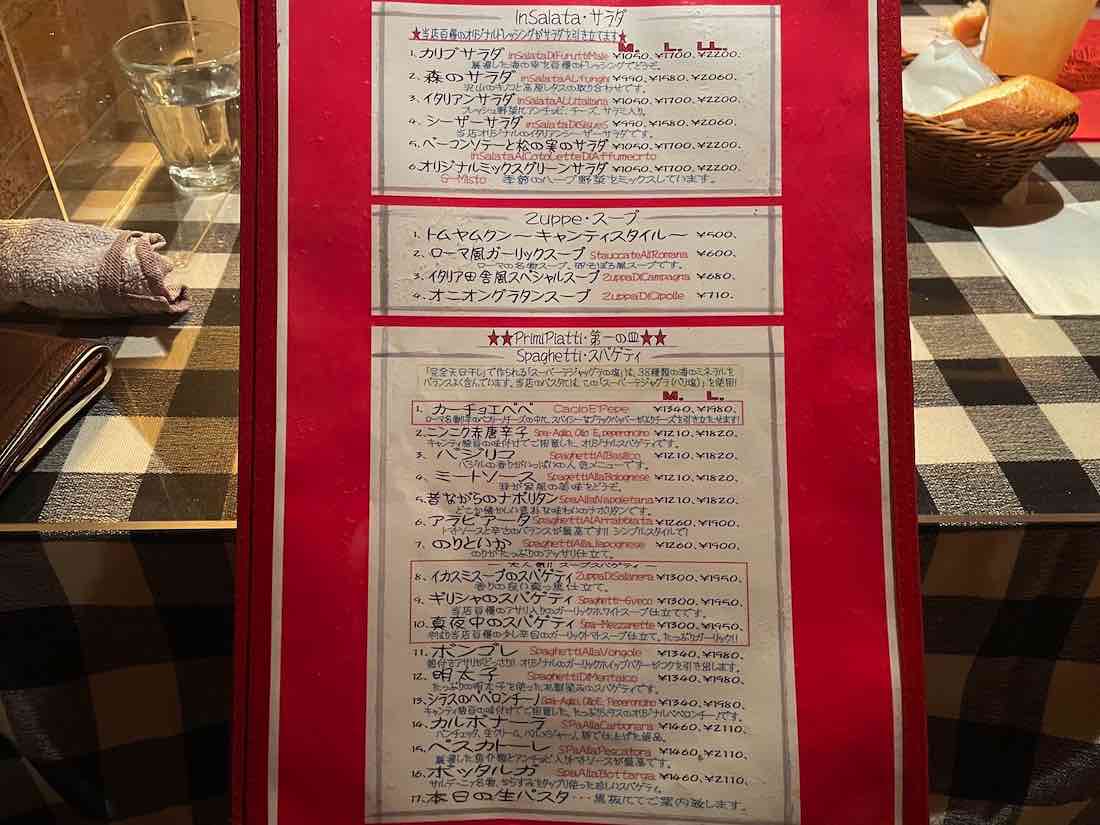 InSalata・サラダ
★当店自慢のオリジナルドレッシングがサラダを引き立てます★
M. L. LL.
1. カリブサラダ InSalataDiFuruttiMale ¥1050. ¥1700. ¥2200.
厳選した海の幸を自慢のドレッシングでどうぞ。
2. 森のサラダ inSalataALfunghi ¥990. ¥1580. ¥2060.
沢山のキノコと高原レタスの取り合わせです。
3. イタリアンサラダ inSalataALLitaliana ¥1050. ¥1700. ¥2200.
フレッシュ野菜にアンチョビ、チーズ、サラミ入り。
4. シーザーサラダ ¥990. ¥1580. ¥2060.
当店オリジナルのイタリアンシーザーサラダです。
5. ベーコンソテーと松の実のサラダ ¥1050. ¥1700. ¥2200.
6. オリジナルミックスグリーンサラダ ¥1050. ¥1700. ¥2200.
G-Misto 季節のハーブ野菜をミックスしています。
Zuppe・スープ
1. トムヤムクン〜キャンティスタイル〜 ¥500.
2. ローマ風ガーリックスープ StauccateAllRomana ¥600.
ローマの名物スープ。卵そぼろ風スープです。
3. イタリア田舎風スペシャルスープ ZuppaDiCampagna ¥680.
4. オニオングラタンスープ ZuppaDiCipolle ¥710.
★★PrimiPiatti・第一の皿★★
Spaghetti・スパゲティ
「完全天日干し」で作られる「スーパーテジャクラの塩」は、38種類の海のミネラルを
バランスよく含んでいます。当店のパスタには、この「スーパーテジャクラ(バリ塩)」を使用!
M. L.
1. カーチョエペペ CacioE'Pepe ¥1340. ¥1980.
ローマ名物!羊のペコリーノチーズの中に、スパイシーなブラックペッパーがよりチーズを引き立たせます!
2. ニンニク赤唐辛子 Spa-Aglio, Olio E, peperoncino ¥1210. ¥1820.
キャンティ独自の味付けでご用意した、オリジナルスパゲティです。
3. バジリコ SpaghettiAlBasilico ¥1210. ¥1820.
バジルの香りがいっぱいの人気メニューです。
4. ミートソース SpagettiAllaBolognese ¥1210. ¥1820.
我が家風の美味をどうぞ。
5. 昔ながらのナポリタン SpaAllaNapoletana ¥1210. ¥1820.
どこか懐かしい素朴な味わいのナポリタンです。
6. アラビアータ SpaghettiAlArrabbiata ¥1260. ¥1900.
トマトソースと辛さのバランスが最高です!! シンプルスタイルで!
7. のりといか SpaghettiAllaJapognese ¥1260. ¥1900.
のりがたっぷりのアッサリ仕立て。
〜 大人気!! スープスパゲティ 〜
8. イカスミスープのスパゲティ ZuppaDiSalanera ¥1300. ¥1950.
香りの良い真っ黒仕立て。
9. ギリシャのスパゲティ Spaghetti-Greco ¥1300. ¥1950.
当店自慢のアサリ入りのガーリックホワイトスープ仕立てです。
10. 真夜中のスパゲティ Spa-Mezzanette ¥1300. ¥1950.
やはり当店自慢の少し辛目のガーリックトマトスープ仕立て。たっぷりガーリック!!
11. ボンゴレ SpaghettiAllaVongole ¥1340. ¥1980.
殻付きアサリがどっさり!! オリジナルのガーリックホイップバターがコクを引き出します。
12. 明太子 SpaghettiDiMentaico ¥1340. ¥1980
たっぷりの明太子を使ったお馴染みのスパゲティです。
13. シラスのペペロンチーノ Spa-Aglio, OlioE. Peperoncino ¥1340. ¥1980.
キャンティ独自の味付けでご用意した、たっぷりシラスのオリジナルペペロンチーノです。
14. カルボナーラ SPaAllaCarbonara ¥1460. ¥2110.
パンチェッタ、生クリーム、パルメジャーノ、卵で仕上げた逸品。
15. ペスカトーレ SPaAllaPescatora ¥1460. ¥2110.
厳選した魚介類とアンチョビ入りトマトソースが最高です。
16. ボッタルガ SpaAllaBottarga ¥1460. ¥2110.
サルデーニァ名物、からすみをタップリ使った珍しいスパゲティ。
17. 本日の生パスタ・・・黒板にてご案内致します。